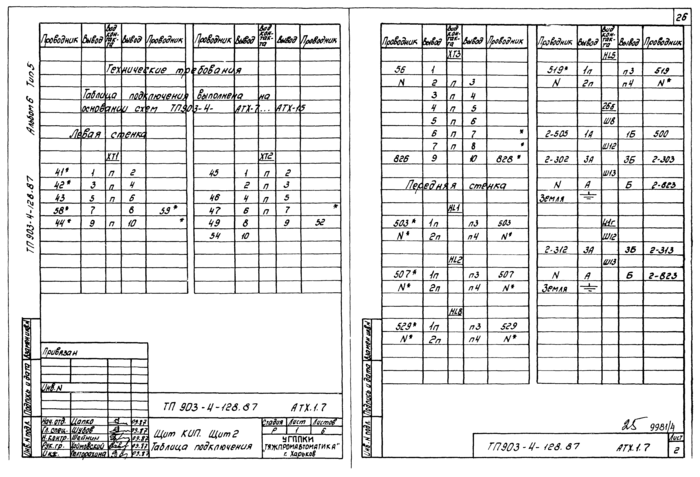 Альбом 6 Тип.5
ТП 903-4-128.87
Проводник Вывод Вид контакта Вывод Проводник
Технические требования
Таблица подключения выполнена на
основании схем ТП903-4- АТХ-7... АТХ-15
Левая стенка
XT1
41* 1 п 2
42* 3 п 4
43 5 п 6
58* 7 8 59*
44* 9 п 10 *
Проводник Вывод Вид контакта Вывод Проводник
XT2
45 1 п 2
2 п 3
46 4 п 5
47 6 п 7 *
49 8 9 52
54 10
Привязан
Инв.N
ТП 903-4-128.87 АТХ.1.7
Нач.отд. Цапко 09.87
Гл.спец. Шубов 09.87
Н.контр. Шейнин 09.87
Рук.гр.
Инж.
Щит КИП. Щит 2
Таблица подключения
Стадия Лист Листов
Р 1 6
УГППКИ
"ТЯЖПРОМАВТОМАТИКА"
г. Харьков
Инв.N подл. Подпись и дата Взам.инв.N
26
Проводник Вывод Вид контакта Вывод Проводник
XT3
56 1
N 2 п 3
3 п 4
4 п 5
5 п 6
6 п 7 *
7 п 8 *
826 9 10 828*
Передняя стенка
HL1
503* 1п п3 503
N* 2п п4 N*
HL2
507* 1п п3 507
N* 2п п4 N*
HL8
529* 1п п3 529
N* 2п п4 N*
Проводник Вывод Вид контакта Вывод Проводник
HL5
519* 1п п3 519
N 2п п4 N*
Ш8
2-503 1А 1Б 500
Ш12
2-302 3А 3Б 2-303
Ш13
N А Б 2-823
Земля
Ш12
2-312 3А 3Б 2-313
Ш13
N А Б 2-823
Земля
25 9981/4
ТП903-4-128.87 АТХ.1.7
Лист
2
Инв.N подл. Подпись и дата Взам.инв.N